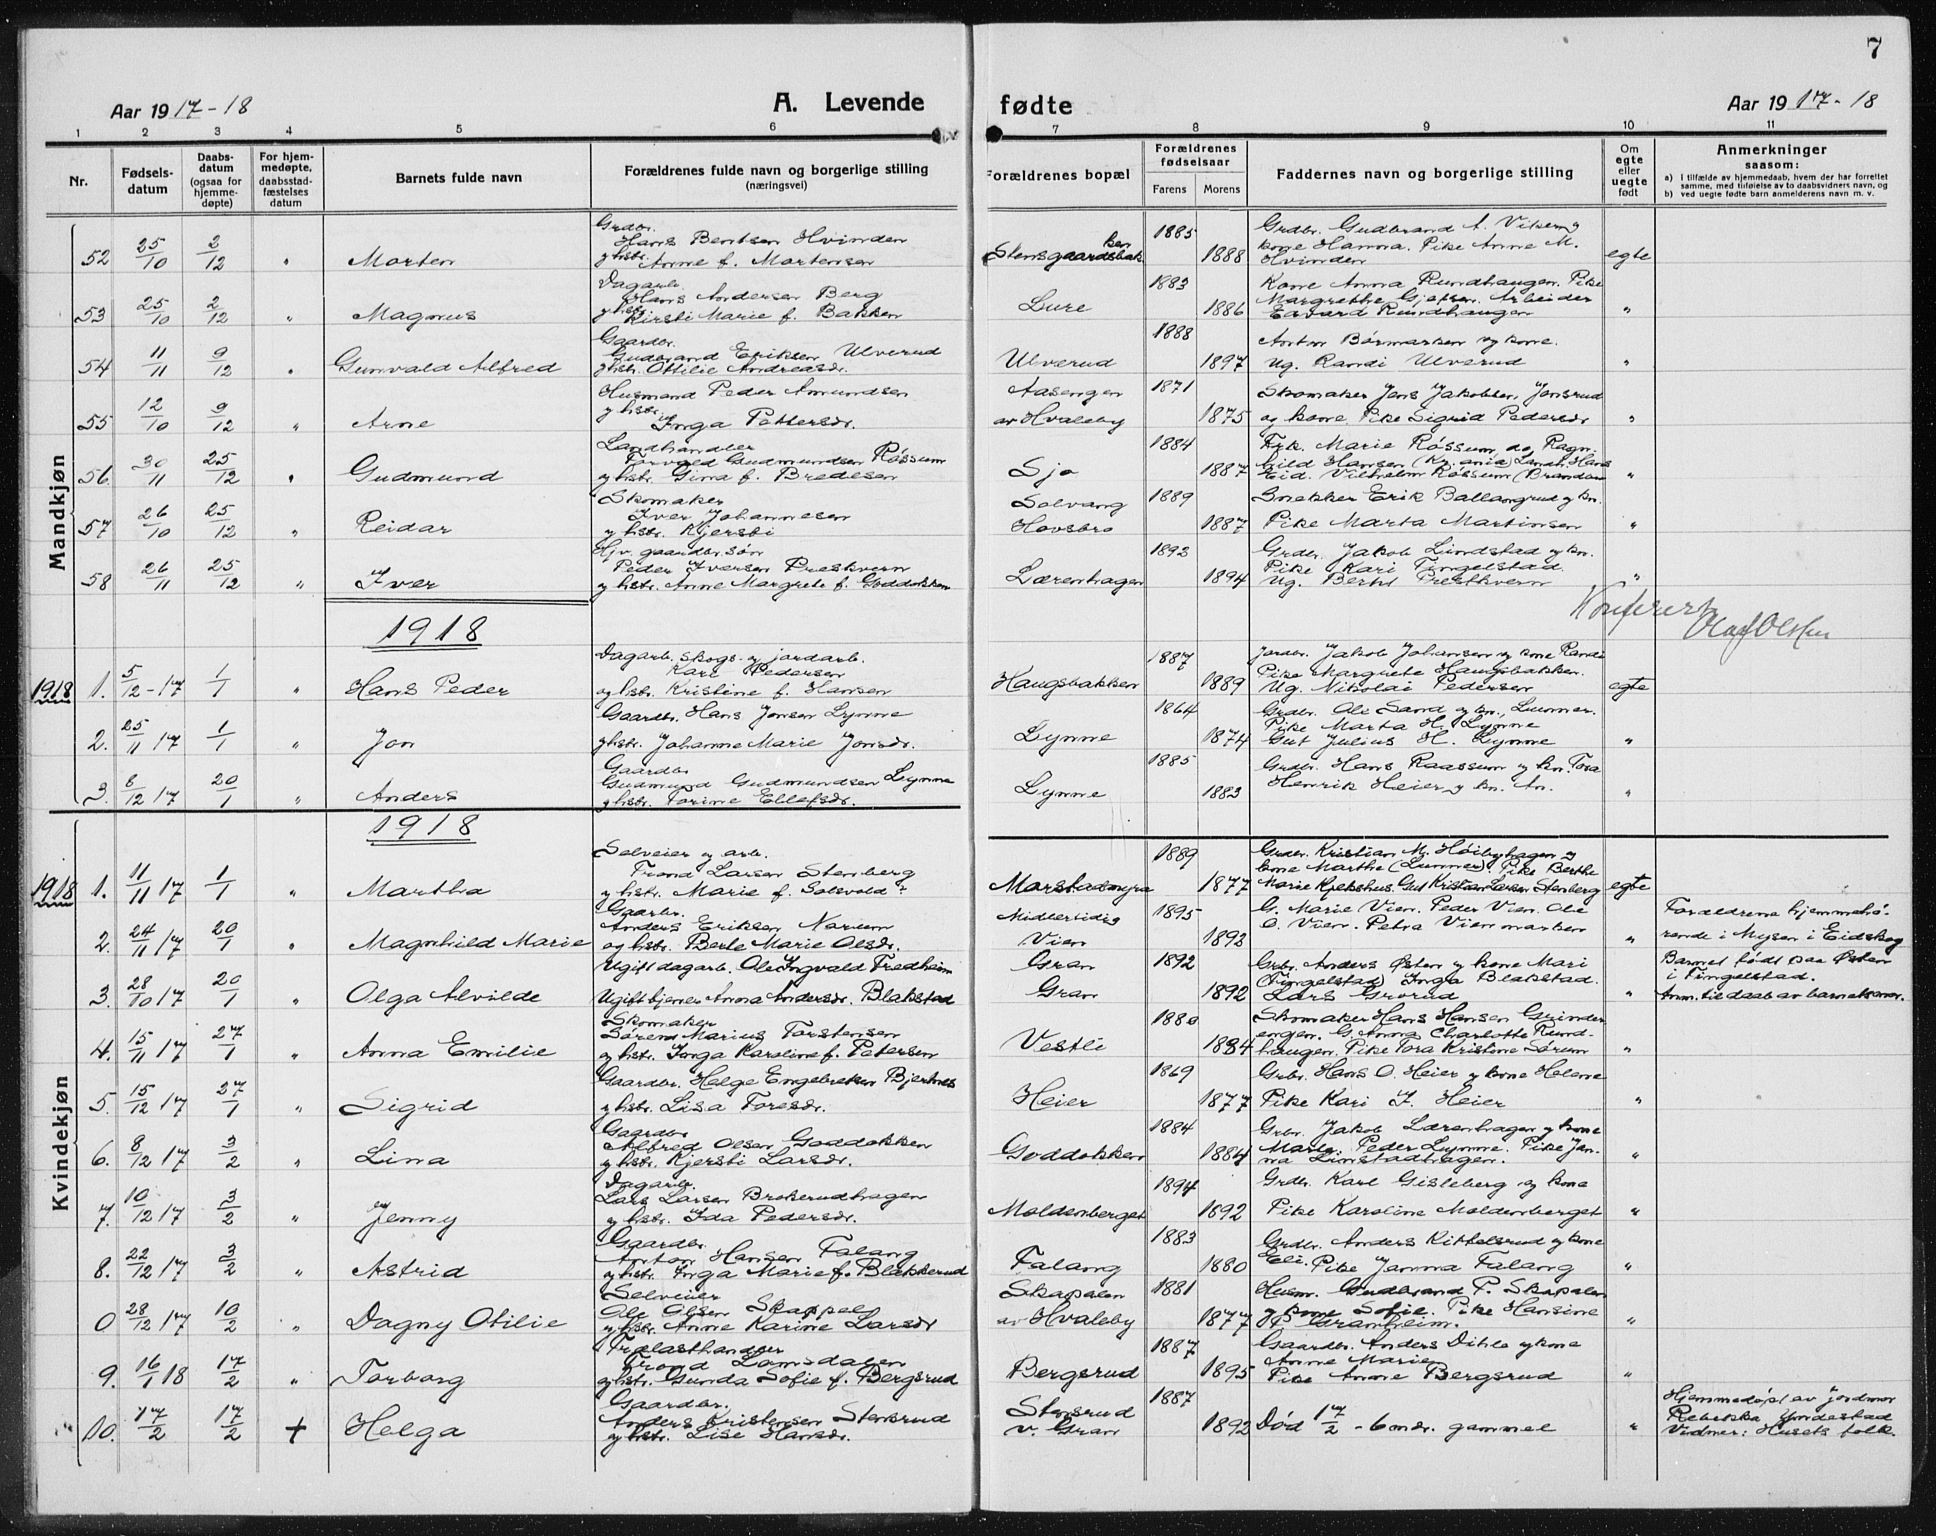 7
Aar 1917-18
A. Levende fødte
Aar 1917-18
1 2 3 4 5 6 7 8 9 10 11
Nr.
Fødsels-
datum
Daabs-
datum
(ogsaa for
hjemme-
døpte)
For hjem-
medøpte,
daabsstad-
fæstelses
datum
Barnets fulde navn
Forældrenes fulde navn og borgerlige stilling
(næringsvei)
Forældrenes bopæl
Forældrenes
fødselsaar
Farens Morens
Faddernes navn og borgerlige stilling
Om
egte
eller
uegte
født
Anmerkninger
saasom:
a) I tilfælde av hjemmedaab, hvem der har forrettet
samme, med tilføielse av to daabsvidners navn, og
b) ved uegte fødte barn anmelderens navn m. v.
Mandkjøn
52 25/10 2/12 " Morten
Grdbr.
Hans Bentsen Hvinden
og hstr. Anne f. Mortensen
Stensgaardsbakken
1885 1888
Grdbr. Gudbrand A. Viken og
kone Hanna. Pike Anne M.
Hvinden
egte
53 25/10 2/12 " Magnus
Dagarb.
Hans Andersen Berg
og hstr. Kirsti Marie f. Bakken
Lure
1883 1886
Kone Anna Rundhaugen. Pike
Margrethe Gjefsen. Arbeider
Edvard Rundhaugen
"
54 11/11 9/12 " Gunvald Alfred
Gaardbr.
Gudbrand Eriksen Ulverud
og hstr. Ottilie Andreasdr.
Ulverud
1888 1897
Anton Børmarken og kone.
Ug. Randi Ulverud
"
55 12/10 9/12 " Arne
Husmand Peder Amundsen
og hstr.
Inga Pettersdr.
Aasengen
av Hvaleby
1871 1875
Skomaker Jens Jakobsen Jonsrud
og kone. Pike Sigrid Pedersdr
"
56. 30/11 25/12 " Gudmund
Landhandler
Torvald Gudmundsen Røssum
og hstr. Gina f. Bredesen
Sjo
1884 1887
Frk. Marie Røssum, do Ragn-
hild Hansen (Kr.ania) Landh. Hans
Eid. Vilhelm Røssum (Brandbu)
"
57 26/10 25/12 " Reidar
Skomaker
Iver Johannesen
og hstr. Kjersti
Solvang
Hovsbro
1889 1887
Snekker Erik Ballangrud og kn.
Pike Marta Martinsen
"
58 26/11 25/12 " Iver
Hjv. gaardbr. søn
Peder Iversen Prestkvern
og hstr. Anne Margrete f. Goddokken
Lærenhagen
1893 1894
Grdbr. Jakob Lundstad og kn.
Pike Kari Tingelstad.
Ug. Bernt Prestkvern
"
Konferert
Olaf Olssen
1918
1918 1. 5/12-17 1/1 " Hans Peder
Dagarb. skogs- og jordarb.
Karl Pedersen
og hstr. Kristine f. Hansen
Haugsbakken
1887 1889
Jordbr. Jakob Johansen og kone Randi
Pike Margrete Haugsbakken.
Ug. Nikolai Pedersen
egte
2. 25/11 17 1/1 " Jon
Gaardbr. Hans Jonsen Lynne
og hstr. Johanne Marie Jonsdr.
Lynne
1864 1874
Grdbr. Ole Sand og kn., Lunner.
Pike Marta H. Lynne
Gut Julius H. Lynne
"
3. 8/12 17 20/1 " Anders
Gaardbr
Gudmund Gudmundsen Lynne
og hstr. Torine Ellefsdr.
Lynne
1885 1883
Grdbr. Hans Raassum og kn. Tora
Henrik Heier og kn. An.
"
Kvindekjøn
1918
1918 1. 11/11 17 1/1 " Martha
Selveier og arb.
Trond Larsen Stenberg
og hstr. Marie f. Solvold?
Marstadmyra
1889 1877
Grdbr. Kristian M. Høibyhagen og
kone Marthe (Lunner). Pike Berthe
Marie Kjekshus. Gut Kristian Larsen Stenberg
egte
2. 24/11 17 20/1 " Magnhild Marie
Gaarbr.
Anders Eriksen Narum
og hstr. Berte Marie Olsdr.
Midlertidig
Vien
1895 1893
G. Marie Vien. Peder Vien. Ole
O. Vien. Petra Vienmarken
"
Foreldrene hjemmehø-
rende i Mysen i Eidskog
3. 28/10 17 20/1 " Olga Alvilde
Ugift dagarb. Ole Ingvald Fredheim
Ugift tjener Anna Andersdr. Blakstad
Gran
Gran
1892 1892
Grbr. Anders Østen og kone Mari
(Tingelstad) Inga Blakstad.
Lars Grorud
"
Barnet født paa Østen
i Tingelstad.
Anm. til daab av barnets mor.
4. 15/11 17 27/1 " Anna Emilie
Skomaker
Søren Marius Torstensen
og hstr. Inga Karoline f. Petersen
Vestli
1880 1884
Skomaker Hans Hansen Grinder-
engen. G. Anna Charlotte Rund-
haugen. Pike Tora Kristine Sørum
"
5. 15/12 17 27/1 " Sigrid
Gaardbr. Helge Engebretsen Bjertnes
og hstr. Lisa Toresdr.
Heier
1869 1877
Grbr. Hans O. Heier og kone Helene
Pike Kari J. Heier
"
6. 8/12 17 3/2 " Lina
Gaardbr
Alfred Olsen Goddokken
og hstr. Kjersti Larsdr.
Goddokken
1884 1884
Grbr. Jakob Lærenhagen og kone
Marte. Peder Lynne. Pike Jan-
na Linstadhagen.
"
7. 10/12 17 3/2 " Jenny
Dagarb.
Lars Larsen Brokerudhagen
og hstr. Ida Pedersdr.
Moldenberget
1894 1892
Grdbr. Karl Gisleberg og kone
Pike Karoline Moldenberget
"
8. 22/12 17 3/2 " Astrid
Gaardbr.
Anton Hansen Falang
og hstr. Inga Marie f. Blekkerud
Falang
1883 1880
Grdbr. Anders Kittelsrud og kone
Eli. Pike Janna Falang
"
0 28/12 17 10/2 " Dagny Otilie
Selveier
Ole Olsen Skappel
og hstr. Anne Karine Larsdr
Skapalen
av Hvaleby
1881 1877
Husm. Gudbrand P. Skapalen
og kone Sofie. Pike Hansine
P. Granheim.
"
9. 16/1 18 17/2 " Torborg
Trælasthandler
Trond Lomsdalen
og hstr. Gunda Sofie f. Bergsrud
Bergsrud
1887 1895
Gaardbr. Anders Dihle og kone
Anne Marie
Pike Anne Bergsrud
"
10. 17/2 17/2 + Helga
Gaardbr.
Anders Kristensen Stensrud
og hstr. Lise Hansdr.
Stensrud
v. Gran
1887 1892
Død 17/2 - 6 mdr. gammel
"
Hjemmedøpt av jordmor
Rebekka Jordestad
Vidner: Husets folk.